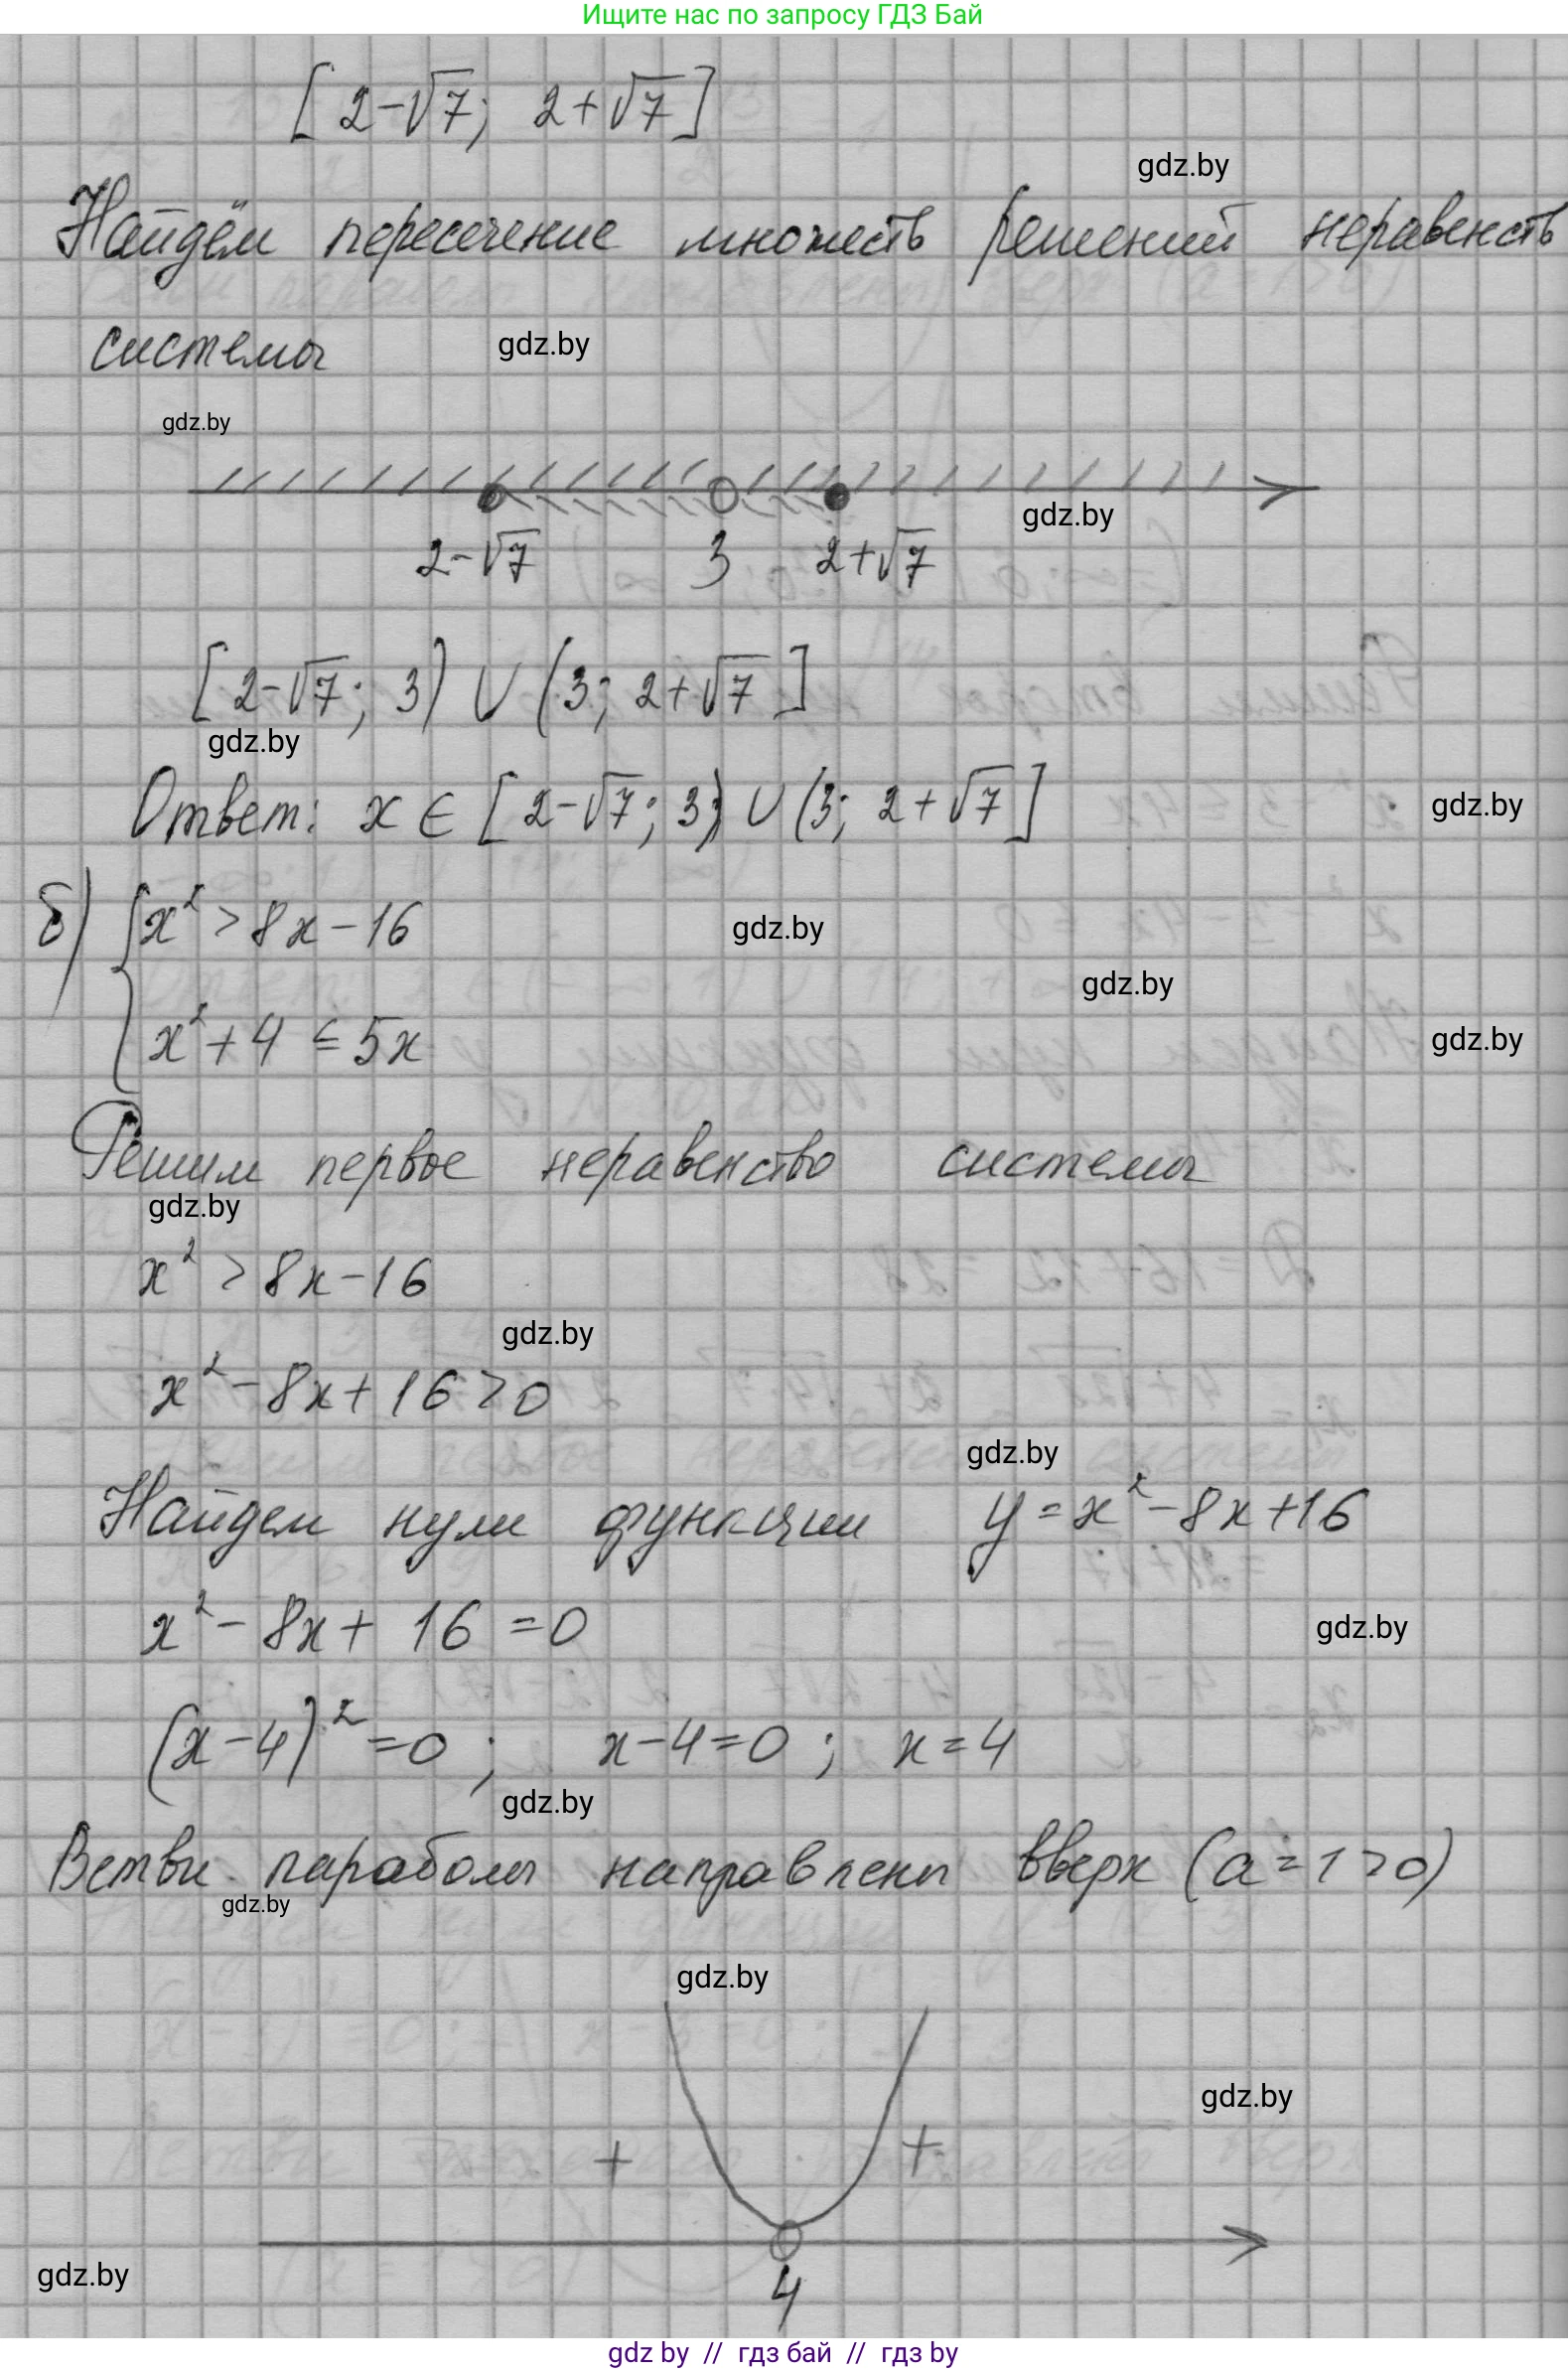 Ищите нас по запросу ГДЗ Бай
[2-√7; 2+√7]
gdz.by
Найдём пересечение множеств решений неравенств
системы
gdz.by
gdz.by
gdz.by
2-√7 3 2+√7
[2-√7; 3) ∪ (3; 2+√7]
gdz.by
Ответ: x ∈ [2-√7; 3) ∪ (3; 2+√7]
gdz.by
б) { x² > 8x - 16
gdz.by
gdz.by
x² + 4 ≤ 5x
gdz.by
Решим первое неравенство системы
gdz.by
x² > 8x - 16
gdz.by
x² - 8x + 16 > 0
gdz.by
Найдем нули функции y = x² - 8x + 16
x² - 8x + 16 = 0
gdz.by
(x - 4)² = 0 ; x - 4 = 0 ; x = 4
gdz.by
Ветви параболы направлены вверх (a = 1 > 0)
gdz.by
gdz.by
gdz.by
+ +
4
gdz.by
gdz by // гдз бай // гдз by